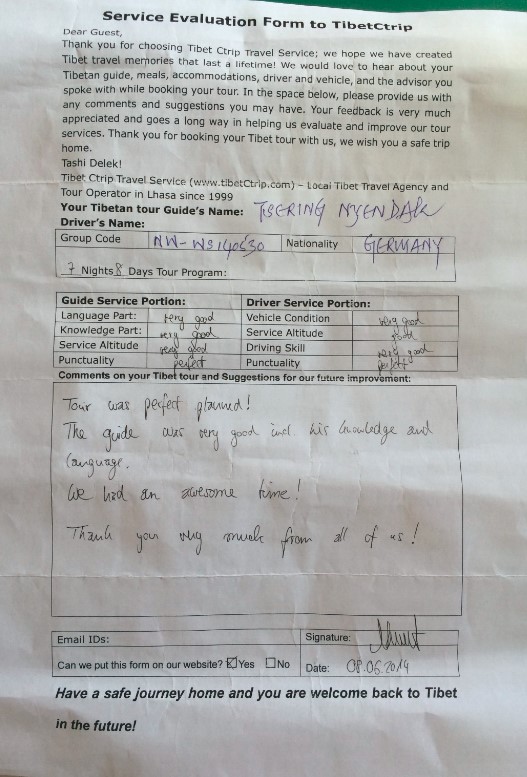 Service Evaluation Form to TibetCtrip
Dear Guest,
Thank you for choosing Tibet Ctrip Travel Service; we hope we have created
Tibet travel memories that last a lifetime! We would love to hear about your
Tibetan guide, meals, accommodations, driver and vehicle, and the advisor you
spoke with while booking your tour. In the space below, please provide us with
any comments and suggestions you may have. Your feedback is very much
appreciated and goes a long way in helping us evaluate and improve our tour
services. Thank you for booking your Tibet tour with us, we wish you a safe trip
home.
Tashi Delek!
Tibet Ctrip Travel Service (www.tibetCtrip.com) – Local Tibet Travel Agency and
Tour Operator in Lhasa since 1999
Your Tibetan tour Guide's Name: TSERING NYENDAK
Driver's Name:
Group Code NW-WS140530 Nationality GERMANY
7 Nights 8 Days Tour Program:
Guide Service Portion: Driver Service Portion:
Language Part: very good Vehicle Condition very good
Knowledge Part: very good Service Altitude good
Service Altitude very good Driving Skill very good
Punctuality perfect Punctuality perfect
Comments on your Tibet tour and Suggestions for our future improvement:
Tour was perfect planned!
The guide was very good incl. his knowledge and
language.
We had an awesome time!
Thank you very much from all of us!
Email IDs: Signature:
Can we put this form on our website? ☑Yes ☐No Date: 08.06.2014
Have a safe journey home and you are welcome back to Tibet
in the future!